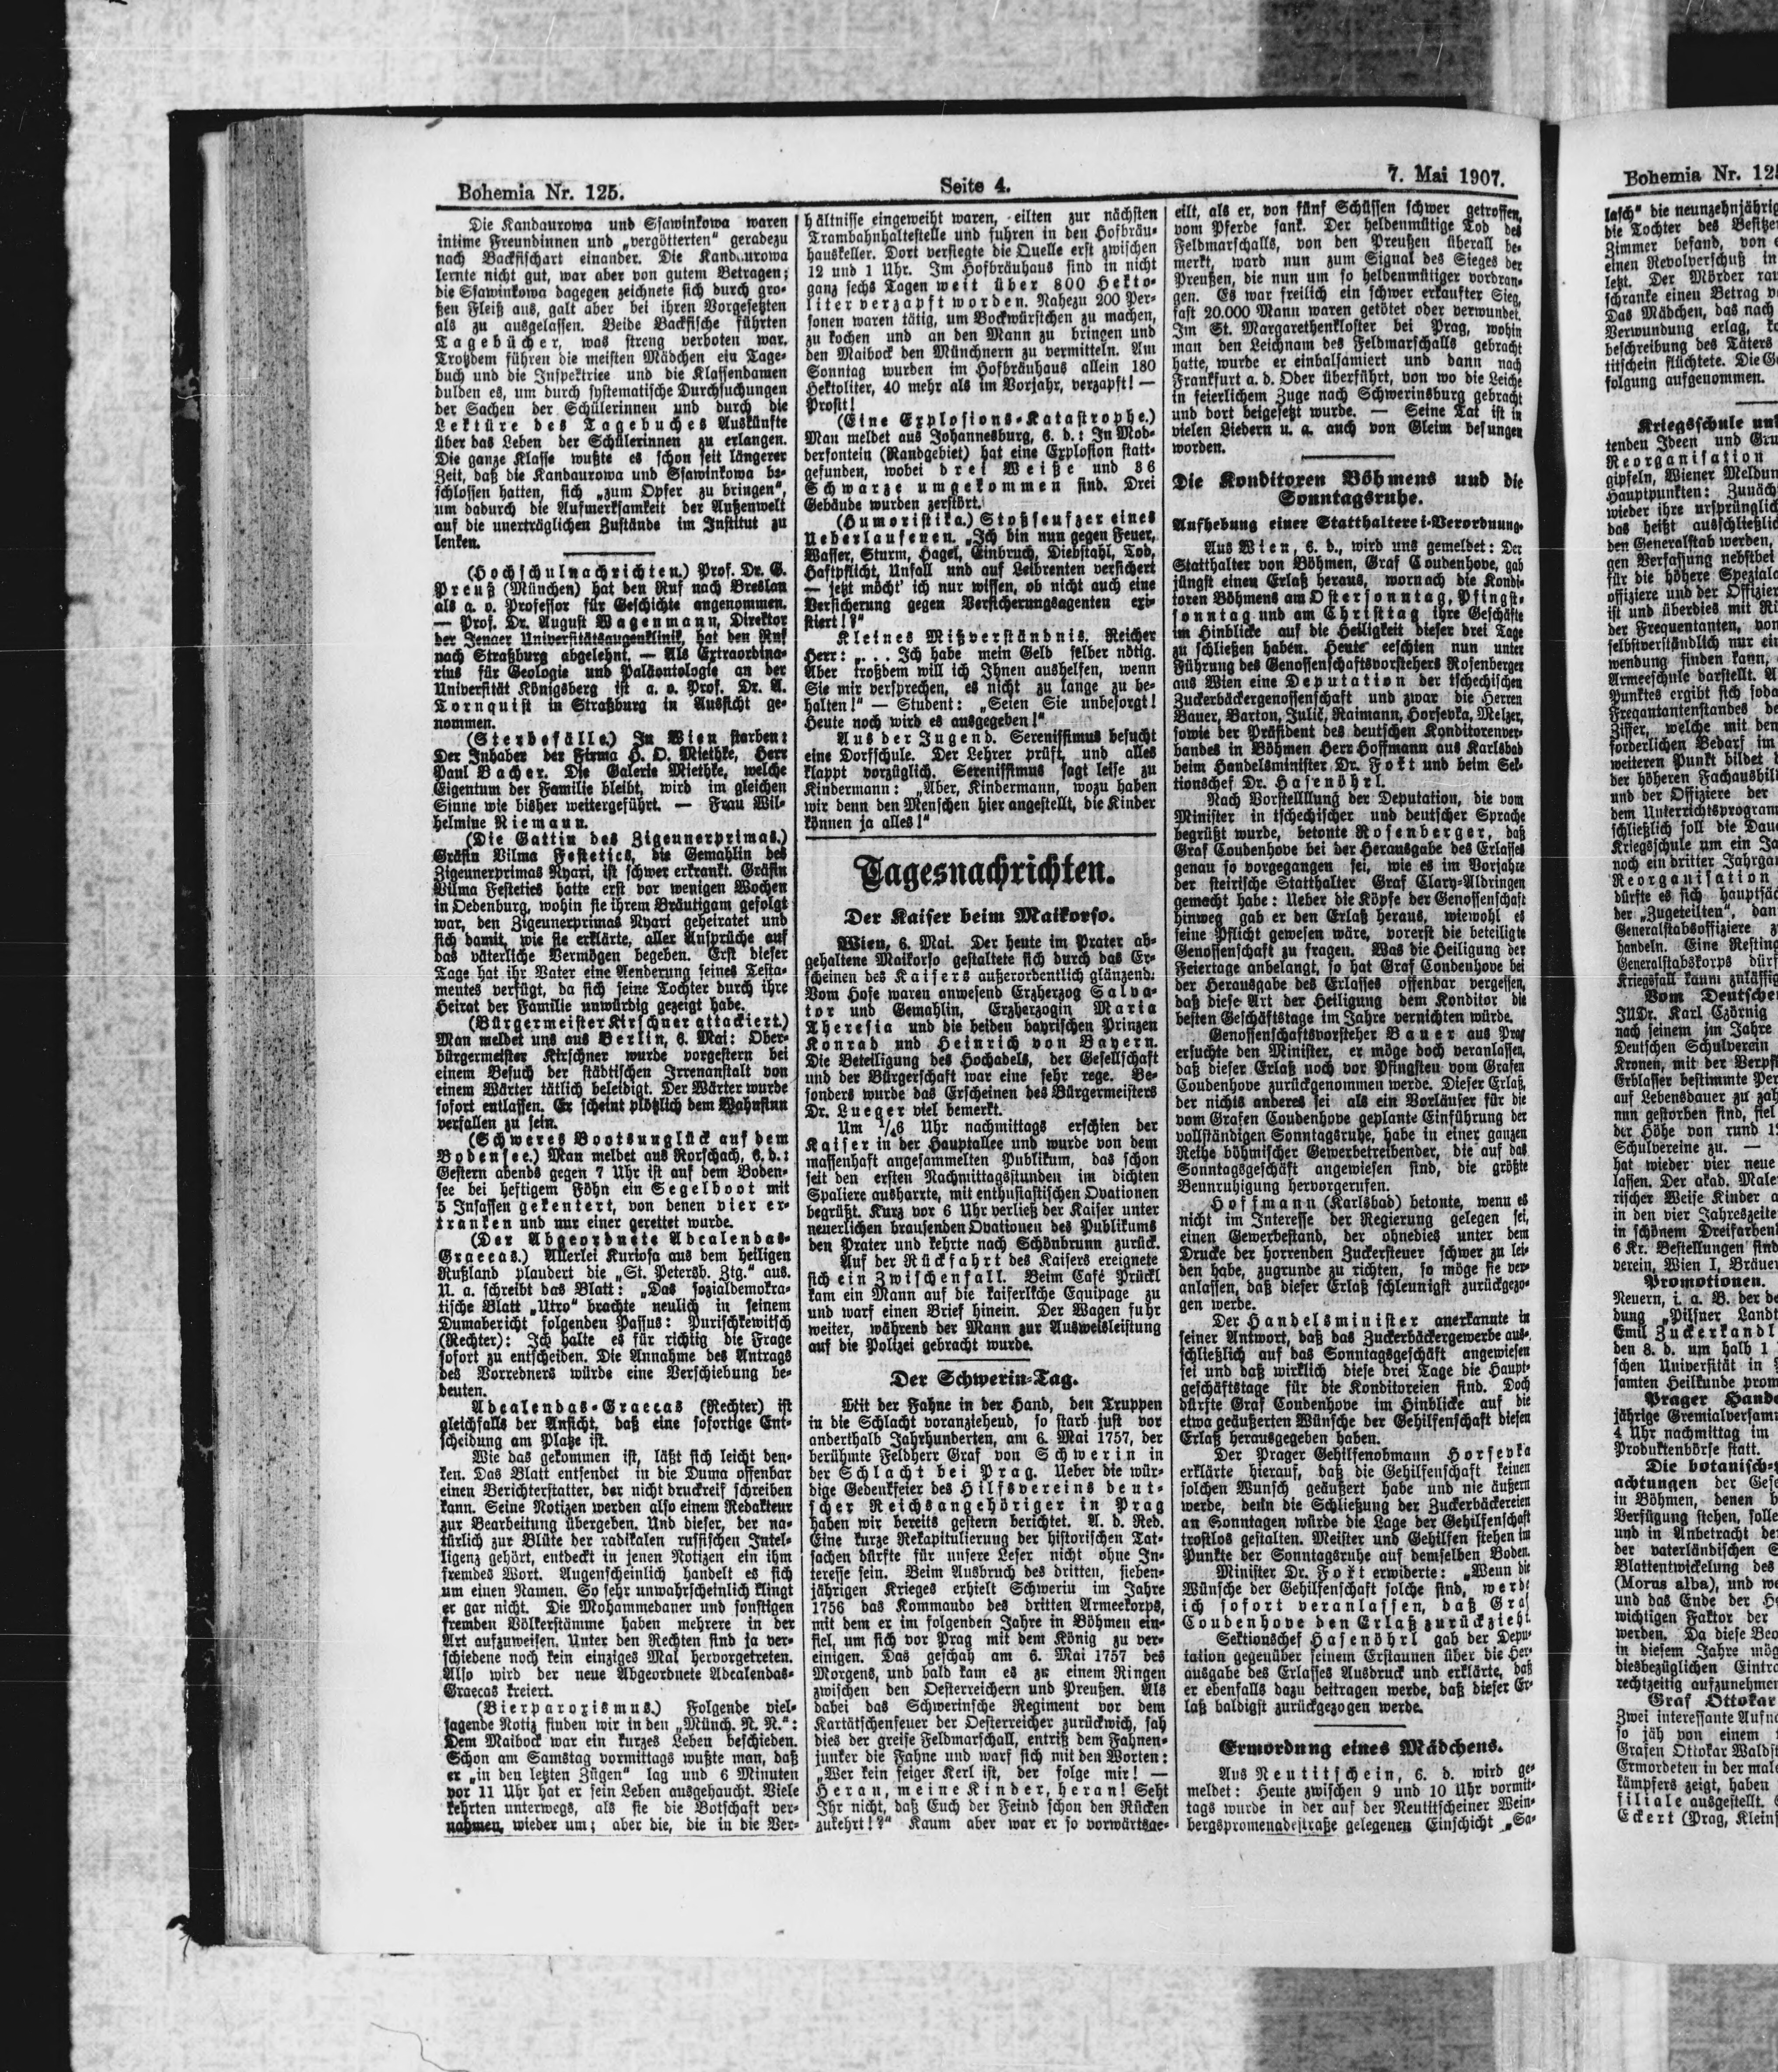 Bohemia Nr. 125.
Seite 4.
7. Mai 1907.
Die Kandaurowa und Ssawinkowa waren
intime Freundinnen und „vergötterten“ geradezu
nach Backfischart einander. Die Kandaurowa
lernte nicht gut, war aber von gutem Betragen;
die Ssawinkowa dagegen zeichnete sich durch gro-
ßen Fleiß aus, galt aber bei ihren Vorgesetzten
als zu ausgelassen. Beide Backfische führten
Tagebücher, was streng verboten war.
Trotzdem führen die meisten Mädchen ein Tage-
buch und die Inspektrice und die Klassendamen
dulden es, um durch systematische Durchsuchungen
der Sachen der Schülerinnen und durch die
Lektüre des Tagebuches Auskünfte
über das Leben der Schülerinnen zu erlangen.
Die ganze Klasse wußte es schon seit längerer
Zeit, daß die Kandaurowa und Ssawinkowa be-
schlossen hatten, sich „zum Opfer zu bringen“,
um dadurch die Aufmerksamkeit der Außenwelt
auf die unerträglichen Zustände im Institut zu
lenken.
(Hochschulnachrichten.) Prof. Dr. G.
Preuß (München) hat den Ruf nach Breslau
als a. o. Professor für Geschichte angenommen.
— Prof. Dr. August Wagenmann, Direktor
der Jenaer Universitätsaugenklinik, hat den Ruf
nach Straßburg abgelehnt. — Als Extraordina-
rius für Geologie und Paläontologie an der
Universität Königsberg ist a. o. Prof. Dr. A.
Tornquist in Straßburg in Aussicht ge-
nommen.
(Sterbefälle.) In Wien starben:
Der Inhaber der Firma H. O. Miethke, Herr
Paul Bacher. Die Galerie Miethke, welche
Eigentum der Familie bleibt, wird im gleichen
Sinne wie bisher weitergeführt. — Frau Wil-
helmine Riemann.
(Die Gattin des Zigeunerprimas.)
Gräfin Vilma Festetics, die Gemahlin des
Zigeunerprimas Nyari, ist schwer erkrankt. Gräfin
Vilma Festetics hatte erst vor wenigen Wochen
in Oedenburg, wohin sie ihrem Bräutigam gefolgt
war, den Zigeunerprimas Nyari geheiratet und
sich damit, wie sie erklärte, aller Ansprüche auf
das väterliche Vermögen begeben. Erst dieser
Tage hat ihr Vater eine Aenderung seines Testa-
mentes verfügt, da sich seine Tochter durch ihre
Heirat der Familie unwürdig gezeigt habe.
(Bürgermeister Kirschner attackiert.)
Man meldet uns aus Berlin, 6. Mai: Ober-
bürgermeister Kirschner wurde vorgestern bei
einem Besuch der städtischen Irrenanstalt von
einem Wärter tätlich beleidigt. Der Wärter wurde
sofort entlassen. Er scheint plötzlich dem Wahnsinn
verfallen zu sein.
(Schweres Bootsunglück auf dem
Bodensee.) Man meldet aus Rorschach, 6. d.:
Gestern abends gegen 7 Uhr ist auf dem Boden-
see bei heftigem Föhn ein Segelboot mit
5 Insassen gekentert, von denen vier er-
tranken und nur einer gerettet wurde.
(Der Abgeordnete Adcalendas-
Graecas.) Allerlei Kuriosa aus dem heiligen
Rußland plaudert die „St. Petersb. Ztg.“ aus.
U. a. schreibt das Blatt: „Das sozialdemokra-
tische Blatt „Utro“ brachte neulich in seinem
Dumabericht folgenden Passus: Purischkewitsch
(Rechter): Ich halte es für richtig die Frage
sofort zu entscheiden. Die Annahme des Antrags
des Vorredners würde eine Verschiebung be-
deuten.
Adcalendas-Graecas (Rechter) ist
gleichfalls der Ansicht, daß eine sofortige Ent-
scheidung am Platze ist.
Wie das gekommen ist, läßt sich leicht den-
ken. Das Blatt entsendet in die Duma offenbar
einen Berichterstatter, der nicht druckreif schreiben
kann. Seine Notizen werden also einem Redakteur
zur Bearbeitung übergeben. Und dieser, der na-
türlich zur Blüte der radikalen russischen Intel-
ligenz gehört, entdeckt in jenen Notizen ein ihm
fremdes Wort. Augenscheinlich handelt es sich
um einen Namen. So sehr unwahrscheinlich klingt
er gar nicht. Die Mohammedaner und sonstigen
fremden Völkerstämme haben mehrere in der
Art aufzuweisen. Unter den Rechten sind ja ver-
schiedene noch kein einziges Mal hervorgetreten.
Also wird der neue Abgeordnete Adcalendas-
Graecas kreiert.
(Bierparoxismus.) Folgende viel-
sagende Notiz finden wir in den „Münch. N. N.“:
Dem Maibock war ein kurzes Leben beschieden.
Schon am Samstag vormittags wußte man, daß
er „in den letzten Zügen“ lag und 6 Minuten
vor 11 Uhr hat er sein Leben ausgehaucht. Viele
kehrten unterwegs, als sie die Botschaft ver-
nahmen, wieder um; aber die, die in die Ver-
hältnisse eingeweiht waren, eilten zur nächsten
Trambahnhaltestelle und fuhren in den Hofbräu-
hauskeller. Dort versiegte die Quelle erst zwischen
12 und 1 Uhr. Im Hofbräuhaus sind in nicht
ganz sechs Tagen weit über 800 Hekto-
liter verzapft worden. Nahezu 200 Per-
sonen waren tätig, um Bockwürstchen zu machen,
zu kochen und an den Mann zu bringen und
den Maibock den Münchnern zu vermitteln. Am
Sonntag wurden im Hofbräuhaus allein 180
Hektoliter, 40 mehr als im Vorjahr, verzapft! —
Prosit!
(Eine Explosions-Katastrophe.)
Man meldet aus Johannesburg, 6. d.: In Mod-
derfontein (Randgebiet) hat eine Explosion statt-
gefunden, wobei drei Weiße und 36
Schwarze umgekommen sind. Drei
Gebäude wurden zerstört.
(Humoristika.) Stoßseufzer eines
Ueberlaufenen. „Ich bin nun gegen Feuer,
Wasser, Sturm, Hagel, Einbruch, Diebstahl, Tod,
Haftpflicht, Unfall und auf Leibrenten versichert
— jetzt möcht’ ich nur wissen, ob nicht auch eine
Versicherung gegen Versicherungsagenten exi-
stiert!?“
Kleines Mißverständnis. Reicher
Herr: „. . . Ich habe mein Geld selber nötig.
Aber trotzdem will ich Ihnen aushelfen, wenn
Sie mir versprechen, es nicht zu lange zu be-
halten!“ — Student: „Seien Sie unbesorgt!
Heute noch wird es ausgegeben!“
Aus der Jugend. Serenissimus besucht
eine Dorfschule. Der Lehrer prüft, und alles
klappt vorzüglich. Serenissimus sagt leise zu
Kindermann: „Aber, Kindermann, wozu haben
wir denn den Menschen hier angestellt, die Kinder
können ja alles!“
Tagesnachrichten.
Der Kaiser beim Maikorso.
Wien, 6. Mai. Der heute im Prater ab-
gehaltene Maikorso gestaltete sich durch das Er-
scheinen des Kaisers außerordentlich glänzend.
Vom Hofe waren anwesend Erzherzog Salva-
tor und Gemahlin, Erzherzogin Maria
Theresia und die beiden bayrischen Prinzen
Konrad und Heinrich von Bayern.
Die Beteiligung des Hochadels, der Gesellschaft
und der Bürgerschaft war eine sehr rege. Be-
sonders wurde das Erscheinen des Bürgermeisters
Dr. Lueger viel bemerkt.
Um ¹/₄6 Uhr nachmittags erschien der
Kaiser in der Hauptallee und wurde von dem
massenhaft angesammelten Publikum, das schon
seit den ersten Nachmittagsstunden im dichten
Spaliere ausharrte, mit enthusiastischen Ovationen
begrüßt. Kurz vor 6 Uhr verließ der Kaiser unter
neuerlichen brausenden Ovationen des Publikums
den Prater und kehrte nach Schönbrunn zurück.
Auf der Rückfahrt des Kaisers ereignete
sich ein Zwischenfall. Beim Café Prückl
kam ein Mann auf die kaiserliche Equipage zu
und warf einen Brief hinein. Der Wagen fuhr
weiter, während der Mann zur Ausweisleistung
auf die Polizei gebracht wurde.
Der Schwerin-Tag.
Mit der Fahne in der Hand, den Truppen
in die Schlacht voranziehend, so starb just vor
anderthalb Jahrhunderten, am 6. Mai 1757, der
berühmte Feldherr Graf von Schwerin in
der Schlacht bei Prag. Ueber die wür-
dige Gedenkfeier des Hilfsvereins deut-
scher Reichsangehöriger in Prag
haben wir bereits gestern berichtet. A. d. Red.
Eine kurze Rekapitulierung der historischen Tat-
sachen dürfte für unsere Leser nicht ohne In-
teresse sein. Beim Ausbruch des dritten, sieben-
jährigen Krieges erhielt Schwerin im Jahre
1756 das Kommando des dritten Armeekorps,
mit dem er im folgenden Jahre in Böhmen ein-
fiel, um sich vor Prag mit dem König zu ver-
einigen. Das geschah am 6. Mai 1757 des
Morgens, und bald kam es zu einem Ringen
zwischen den Oesterreichern und Preußen. Als
dabei das Schwerinsche Regiment vor dem
Kartätschenfeuer der Oesterreicher zurückwich, sah
dies der greise Feldmarschall, entriß dem Fahnen-
junker die Fahne und warf sich mit den Worten:
„Wer kein feiger Kerl ist, der folge mir! —
Heran, meine Kinder, heran! Seht
Ihr nicht, daß Euch der Feind schon den Rücken
zukehrt!?“ Kaum aber war er so vorwärtsge-
eilt, als er, von fünf Schüssen schwer getroffen,
vom Pferde sank. Der heldenmütige Tod des
Feldmarschalls, von den Preußen überall be-
merkt, ward nun zum Signal des Sieges der
Preußen, die nun um so heldenmütiger vordran-
gen. Es war freilich ein schwer erkaufter Sieg,
fast 20.000 Mann waren getötet oder verwundet.
Im St. Margarethenkloster bei Prag, wohin
man den Leichnam des Feldmarschalls gebracht
hatte, wurde er einbalsamiert und dann nach
Frankfurt a. d. Oder überführt, von wo die Leiche
in feierlichem Zuge nach Schwerinsburg gebracht
und dort beigesetzt wurde. — Seine Tat ist in
vielen Liedern u. a. auch von Gleim besungen
worden.
Die Konditoren Böhmens und die
Sonntagsruhe.
Aufhebung einer Statthalterei-Verordnung.
Aus Wien, 6. d., wird uns gemeldet: Der
Statthalter von Böhmen, Graf Coudenhove, gab
jüngst einen Erlaß heraus, wornach die Kondi-
toren Böhmens am Ostersonntag, Pfingst-
sonntag und am Christtag ihre Geschäfte
im Hinblicke auf die Heiligkeit dieser drei Tage
zu schließen haben. Heute eeschten nun unter
Führung des Genossenschaftsvorstehers Rosenberger
aus Wien eine Deputation der tschechischen
Zuckerbäckergenossenschaft und zwar die Herren
Bauer, Barton, Julič, Raimann, Horsevka, Melzer,
sowie der Präsident des deutschen Konditorenver-
bandes in Böhmen Herr Hoffmann aus Karlsbad
beim Handelsminister Dr. Fořt und beim Sek-
tionschef Dr. Hasenöhrl.
Nach Vorstelllung der Deputation, die vom
Minister in tschechischer und deutscher Sprache
begrüßt wurde, betonte Rosenberger, daß
Graf Coudenhove bei der Herausgabe des Erlasses
genau so vorgegangen sei, wie es im Vorjahre
der steirische Statthalter Graf Clary-Aldringen
gemacht habe: Ueber die Köpfe der Genossenschaft
hinweg gab er den Erlaß heraus, wiewohl es
seine Pflicht gewesen wäre, vorerst die beteiligte
Genossenschaft zu fragen. Was die Heiligung der
Feiertage anbelangt, so hat Graf Coudenhove bei
der Herausgabe des Erlasses offenbar vergessen,
daß diese Art der Heiligung dem Konditor die
besten Geschäftstage im Jahre vernichten würde.
Genossenschaftsvorsteher Bauer aus Prag
ersuchte den Minister, er möge doch veranlassen,
daß dieser Erlaß noch vor Pfingsten vom Grafen
Coudenhove zurückgenommen werde. Dieser Erlaß,
der nichts anderes sei als ein Vorläufer für die
vom Grafen Coudenhove geplante Einführung der
vollständigen Sonntagsruhe, habe in einer ganzen
Reihe böhmischer Gewerbetreibender, die auf das
Sonntagsgeschäft angewiesen sind, die größte
Bennruhigung hervorgerufen.
Hoffmann (Karlsbad) betonte, wenn es
nicht im Interesse der Regierung gelegen sei,
einen Gewerbestand, der ohnedies unter dem
Drucke der horrenden Zuckersteuer schwer zu lei-
den habe, zugrunde zu richten, so möge sie ver-
anlassen, daß dieser Erlaß schleunigst zurückgezo-
gen werde.
Der Handelsminister anerkannte in
seiner Antwort, daß das Zuckerbäckergewerbe aus-
schließlich auf das Sonntagsgeschäft angewiesen
sei und daß wirklich diese drei Tage die Haupt-
geschäftstage für die Konditoreien sind. Doch
dürfte Graf Coudenhove im Hinblicke auf die
etwa geäußerten Wünsche der Gehilfenschaft diesen
Erlaß herausgegeben haben.
Der Prager Gehilfenobmann Horsevka
erklärte hierauf, daß die Gehilfenschaft keinen
solchen Wunsch geäußert habe und nie äußern
werde, denn die Schließung der Zuckerbäckereien
an Sonntagen würde die Lage der Gehilfenschaft
trostlos gestalten. Meister und Gehilfen stehen im
Punkte der Sonntagsruhe auf demselben Boden.
Minister Dr. Fořt erwiderte: „Wenn die
Wünsche der Gehilfenschaft solche sind, werde
ich sofort veranlassen, daß Graf
Coudenhove den Erlaß zurückzieht.
Sektionschef Hasenöhrl gab der Depu-
tation gegenüber seinem Erstaunen über die Her-
ausgabe des Erlasses Ausdruck und erklärte, daß
er ebenfalls dazu beitragen werde, daß dieser Er-
laß baldigst zurückgezogen werde.
Ermordung eines Mädchens.
Aus Neutitschein, 6. d. wird ge-
meldet: Heute zwischen 9 und 10 Uhr vormit-
tags wurde in der auf der Neutitscheiner Wein-
bergspromenadestraße gelegenen Einschicht „Sa-
Bohemia Nr. 125
lasch“ die neunzehnjährig
die Tochter des Besitzer
Zimmer befand, von
einen Revolverschuß in
letzt. Der Mörder rau
schranke einen Betrag v
Das Mädchen, das nach
Verwundung erlag, k
beschreibung des Täters
titschein flüchtete. Die G
folgung aufgenommen.
Kriegsschule un
tenden Ideen und Gru
Reorganisation
gipfeln, Wiener Meldun
Hauptpunkten: Zunäch
wieder ihre ursprünglich
das heißt ausschließlic
den Generalstab werden,
gen Verfassung nebstbei
für die höhere Speziala
offiziere und der Offizier
ist und überdies mit Ri
der Frequentanten, von
selbstverständlich nur ein
wendung finden kann,
Armeeschule darstellt. A
Punktes ergibt sich soda
Freqantantenstandes be
Ziffer, welche mit dem
forderlichen Bedarf im
weiteren Punkt bildet
der höheren Fachausbil
und der Offiziere der
dem Unterrichtsprogram
schließlich soll die Dau
Kriegsschule um ein Ja
noch ein dritter Jahrgan
Reorganisation
dürfte es sich hauptsäc
der „Zugeteilten“, dan
Generalstabsoffiziere z
handeln. Eine Resting
Generalstabskorps dürf
Kriegsfall kaum zulässig
Vom Deutsche
JUDr. Karl Czörnig
nach seinem im Jahre
Deutschen Schulverein
Kronen, mit der Verpf
Erblasser bestimmte Per
auf Lebensdauer zu zah
nun gestorben sind, fiel
der Höhe von rund 1
Schulvereine zu. —
hat wieder vier neue
lassen. Der akad. Male
rischer Weise Kinder a
in den vier Jahreszeite
in schönem Dreifarben
6 Kr. Bestellungen sind
verein, Wien I, Bräuer
Promotionen.
Neuern, i. a. B. der be
dung „Pilsner Landt
Emil Zuckerkandl
den 8. d. um halb 1
schen Universität in
samten Heilkunde prom
Prager Hande
jährige Gremialversamm
4 Uhr nachmittag im
Produktenbörse statt.
Die botanisch-
achtungen der Gese
in Böhmen, denen b
Verfügung stehen, solle
und in Anbetracht de
der vaterländischen
Blattentwickelung des
(Morus alba), und we
und das Ende der H
wichtigen Faktor der
werden. Da diese Beo
in diesem Jahre mög
diesbezüglichen Eintra
rechtzeitig aufzunehmen
Graf Ottokar
Zwei interessante Aufna
so jäh von einem
Grafen Ottokar Waldst
Ermordeten in der male
kämpfers zeigt, haben
filiale ausgestellt.
Eckert (Prag, Kleins